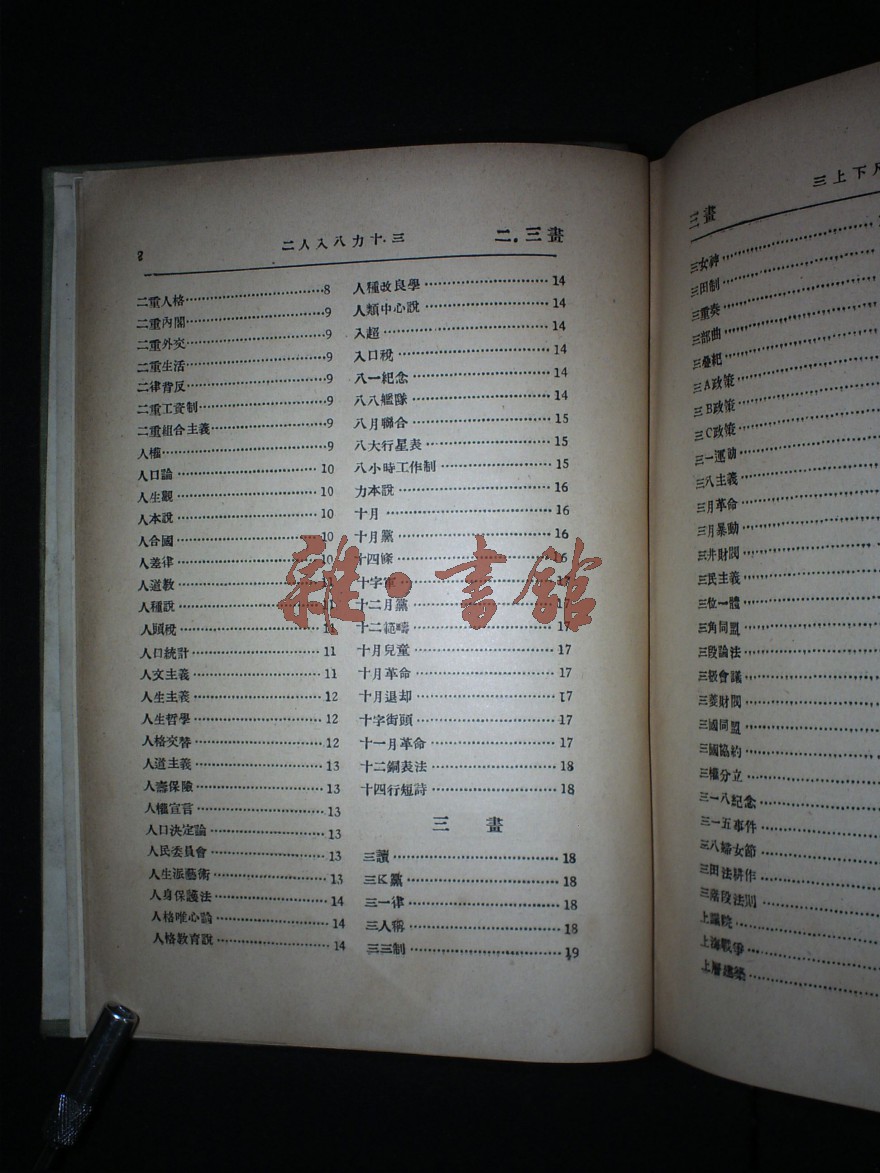 二人入八力十.三
二.三畫
二重人格……8
二重內閣……9
二重外交……9
二重生活……9
二律背反……9
二重工資制……9
二重組合主義……9
人權……9
人口論……10
人生觀……10
人本說……10
人合國……10
人差律……10
人道教……11
人種說……11
人頭稅……11
人口統計……11
人文主義……11
人生主義……12
人生哲學……12
人格交替……12
人道主義……13
人壽保險……13
人權宣言……13
人口決定論……13
人民委員會……13
人生派藝術……13
人身保護法……14
人格唯心論……14
人格教育說……14
人種改良學……14
人類中心說……14
入超……14
入口稅……14
八一紀念……14
八八艦隊……14
八月聯合……15
八大行星表……15
八小時工作制……15
力本說……16
十月……16
十月黨……16
十四條……16
十字軍……17
十二月黨……17
十二範疇……17
十月兒童……17
十月革命……17
十月退却……17
十字街頭……17
十一月革命……17
十二銅表法……18
十四行短詩……18
三畫
三讀……18
三K黨……18
三一律……18
三人稱……18
三三制……19
雜·書館
三上下凡
三畫
三女神
三田制
三重奏
三部曲
三疊紀
三A政策
三B政策
三C政策
三一運動
三八主義
三月革命
三月暴動
三井財閥
三民主義
三位一體
三角同盟
三段論法
三級會議
三菱財閥
三國同盟
三國協約
三權分立
三一八紀念
三一五事件
三八婦女節
三田法耕作
三階段法則
上議院
上海戰爭
上層建築